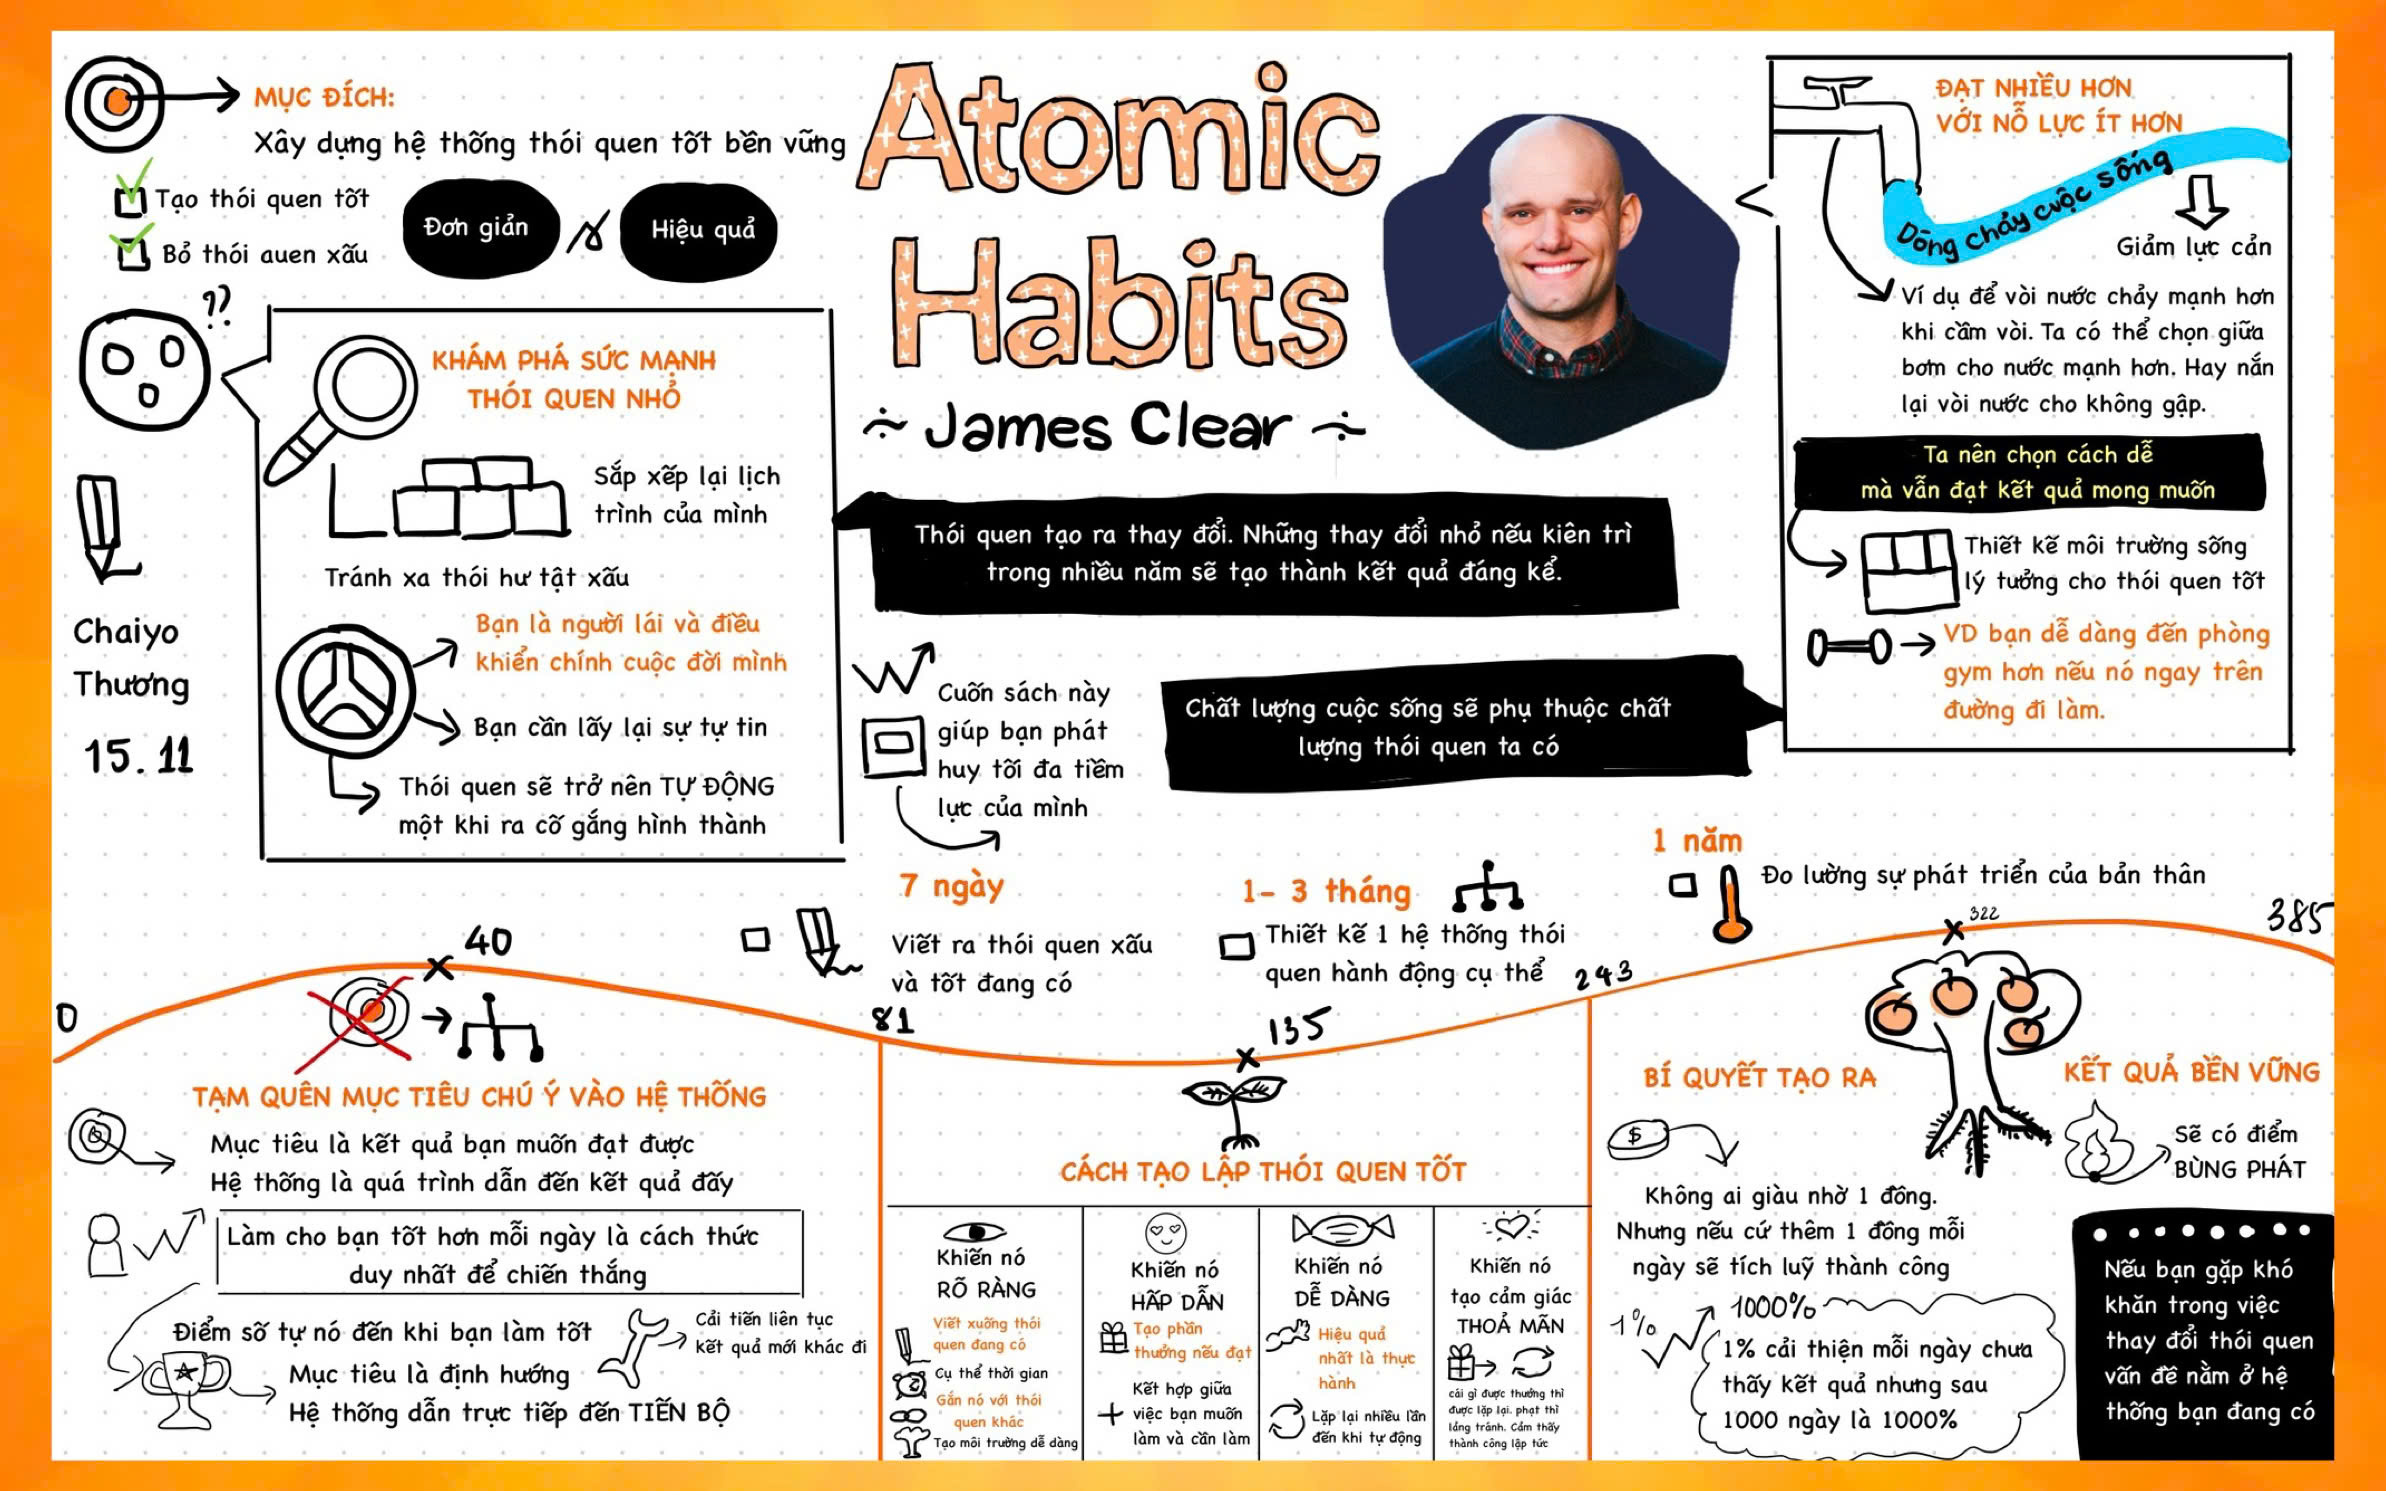 MỤC ĐÍCH:
Xây dựng hệ thống thói quen tốt bền vững
Tạo thói quen tốt
Bỏ thói auen xấu
Đơn giản
&
Hiệu quả
Atomic
Habits
James Clear
??
KHÁM PHÁ SỨC MẠNH
THÓI QUEN NHỎ
Sắp xếp lại lịch
trình của mình
Tránh xa thói hư tật xấu
Bạn là người lái và điều
khiển chính cuộc đời mình
Bạn cần lấy lại sự tự tin
Thói quen sẽ trở nên TỰ ĐỘNG
một khi ra cố gắng hình thành
Chaiyo
Thương
15.11
Thói quen tạo ra thay đổi. Những thay đổi nhỏ nếu kiên trì
trong nhiều năm sẽ tạo thành kết quả đáng kể.
Cuốn sách này
giúp bạn phát
huy tối đa tiềm
lực của mình
Chất lượng cuộc sống sẽ phụ thuộc chất
lượng thói quen ta có
ĐẠT NHIỀU HƠN
VỚI NỖ LỰC ÍT HƠN
Dòng chảy cuộc sống
Giảm lực cản
Ví dụ để vòi nước chảy mạnh hơn
khi cầm vòi. Ta có thể chọn giữa
bơm cho nước mạnh hơn. Hay nắn
lại vòi nước cho không gập.
Ta nên chọn cách dễ
mà vẫn đạt kết quả mong muốn
Thiết kế môi trường sống
lý tưởng cho thói quen tốt
VD bạn dễ dàng đến phòng
gym hơn nếu nó ngay trên
đường đi làm.
7 ngày
Viết ra thói quen xấu
và tốt đang có
1- 3 tháng
Thiết kế 1 hệ thống thói
quen hành động cụ thể
1 năm
Đo lường sự phát triển của bản thân
0
40
81
135
243
322
385
TẠM QUÊN MỤC TIÊU CHÚ Ý VÀO HỆ THỐNG
Mục tiêu là kết quả bạn muốn đạt được
Hệ thống là quá trình dẫn đến kết quả đấy
Làm cho bạn tốt hơn mỗi ngày là cách thức
duy nhất để chiến thắng
Điểm số tự nó đến khi bạn làm tốt
Cải tiến liên tục
kết quả mới khác đi
Mục tiêu là định hướng
Hệ thống dẫn trực tiếp đến TIẾN BỘ
CÁCH TẠO LẬP THÓI QUEN TỐT
Khiến nó
RÕ RÀNG
Viết xuống thói
quen đang có
Cụ thể thời gian
Gắn nó với thói
quen khác
Tạo môi trường dễ dàng
Khiến nó
HẤP DẪN
Tạo phần
thưởng nếu đạt
+
Kết hợp giữa
việc bạn muốn
làm và cần làm
Khiến nó
DỄ DÀNG
Hiệu quả
nhất là thực
hành
Lặp lại nhiều lần
đến khi tự động
Khiến nó
tạo cảm giác
THOẢ MÃN
cái gì được thưởng thì
được lặp lại. phạt thì
lảng tránh. Cảm thấy
thành công lập tức
BÍ QUYẾT TẠO RA
KẾT QUẢ BỀN VỮNG
$
Không ai giàu nhờ 1 đồng.
Nhưng nếu cứ thêm 1 đồng mỗi
ngày sẽ tích luỹ thành công
1%
1000%
1% cải thiện mỗi ngày chưa
thấy kết quả nhưng sau
1000 ngày là 1000%
Sẽ có điểm
BÙNG PHÁT
Nếu bạn gặp khó
khăn trong việc
thay đổi thói quen
vấn đề nằm ở hệ
thống bạn đang có